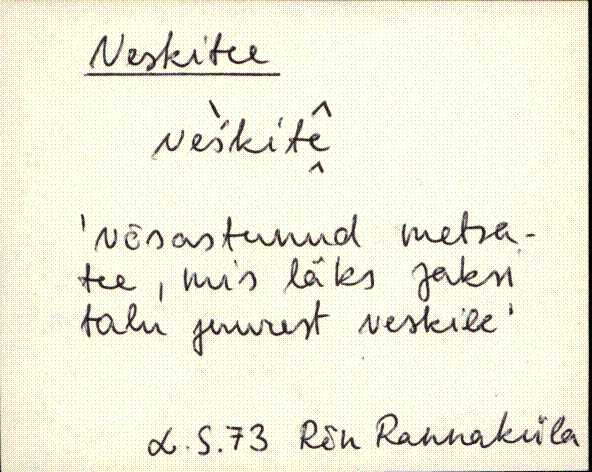 Neskitee
nèśkitḙ̂
'võsastunud metsa-
tee, mis läks Jaksi
talu juurest veskile'
L.S.73 Rõn Rannaküla